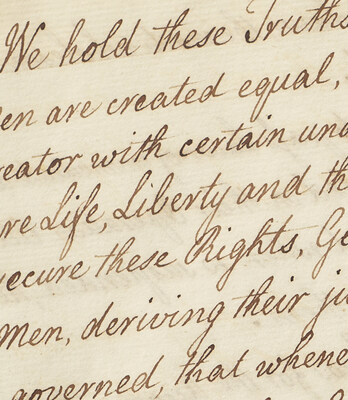 We hold these Truths
en are created equal,
reator with certain una
re Life, Liberty and th
secure these Rights, Go
men, deriving their ju
governed, that whene